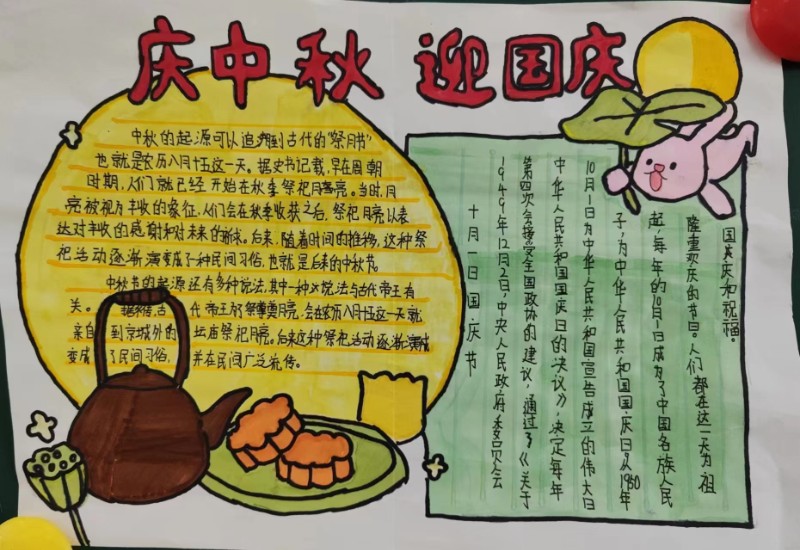 庆中秋 迎国庆
中秋的起源可以追溯到古代的"祭月节"
也就是农历八月十五这一天。据史书记载,早在周朝
时期,人们就已经开始在秋季祭祀月亮。当时,月
亮被视为丰收的象征,人们会在秋季收获之后,祭祀月亮以表
达对丰收的感谢和对未来的。后来,随着时间的推移,这种祭
祀活动逐渐演变成了种民间习俗,也就是后来的中秋节。
中秋节的起源还有多种说法,其中一种说法与古代帝王有
关。古代帝王祭月亮,会在农历八月十五这一天就
亲自到京城外的坛庙祭祀月亮。后来这种祭祀活动逐渐演
变成了民间习俗,并在民间广泛流传。
十月一日国庆节
1949年12月2日,中央人民政府委员会
第四次会接受全国政协的建议,通过了《关于
中华人民共和国国庆日的决议》,决定每年
10月1日为中华人民共和国宣告成立的伟大日
子,为中华人民共和国国庆日。从1950年
起,每年的10月1日成为了中国各族人民
隆重欢庆的节日。人们都在这一天为祖
国庆和祝福。